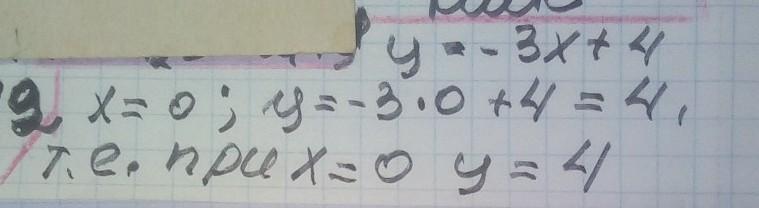 y = -3x + 4
x = 0; y = -3·0 + 4 = 4,
т.е. при x = 0 y = 4